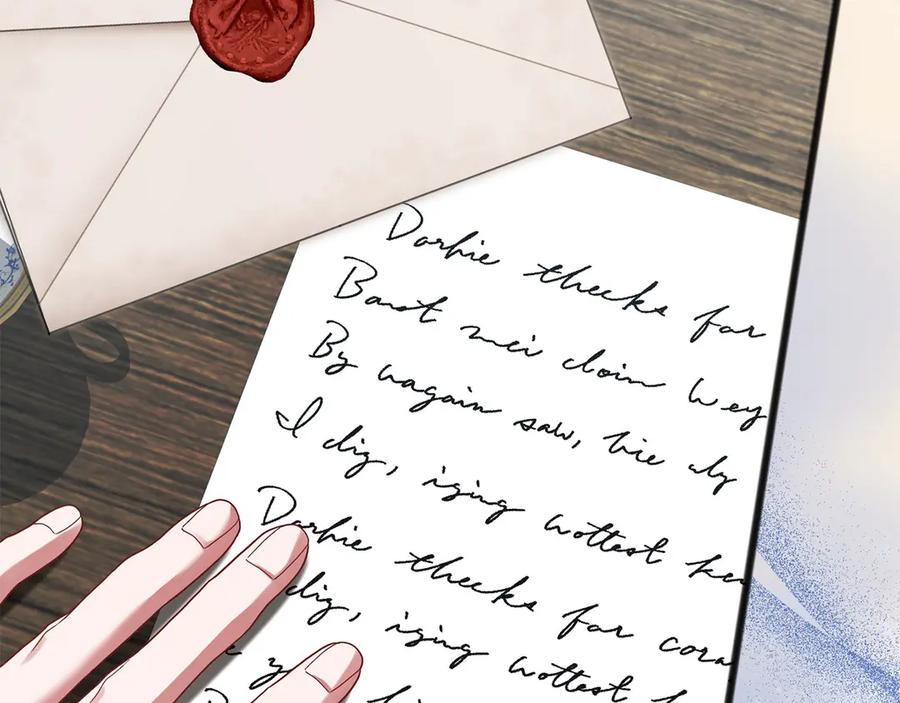 Darhie theeks far
Banst mei cloin wey
By nagain saw, hie dy
I dig, izing wottest ke
Darhie theeks far cora
dig, izing wottest